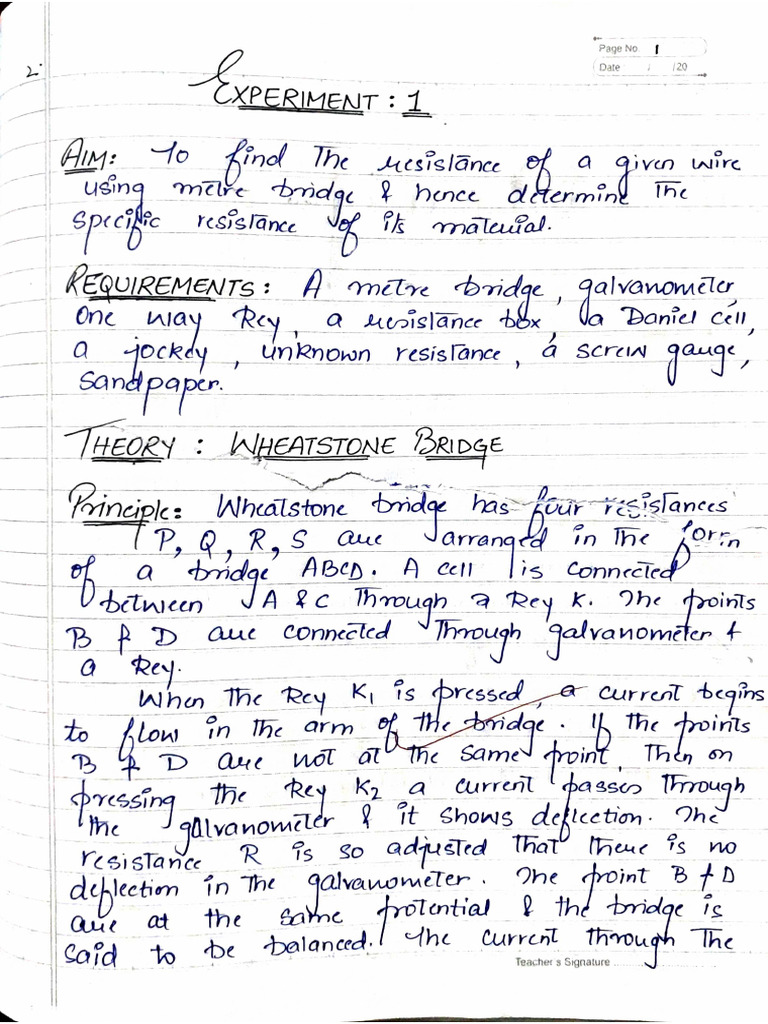 Page No. 1
Date / /20
2.
EXPERIMENT : 1
AIM: To find the resistance of a given wire
using metre bridge & hence determine the
specific resistance of its material.
REQUIREMENTS: A metre bridge, galvanometer
one way key, a resistance box, a Daniel cell,
a jockey, unknown resistance, a screw gauge,
sandpaper.
THEORY : WHEATSTONE BRIDGE
Principle: Wheatstone bridge has four resistances
P, Q, R, S are arranged in the form
of a bridge ABCD. A cell is connected
between A & C through a key K. The points
B & D are connected through galvanometer &
a key.
When the key K₁ is pressed, a current begins
to flow in the arm of the bridge. If the points
B & D are not at the same point, then on
pressing the key K₂ a current passes through
the galvanometer & it shows deflection. The
resistance R is so adjusted that there is no
deflection in the galvanometer. The point B & D
are at the same potential & the bridge is
said to be balanced. The current through the
Teacher's Signature